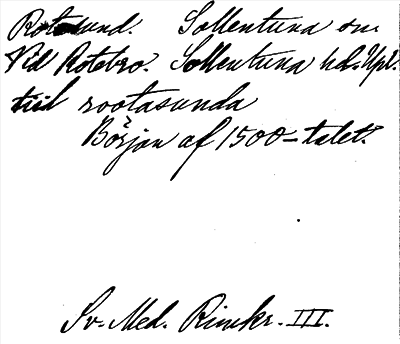 Rotasund. Sollentuna sn.
Vid Rotebro. Sollentuna hd. Upl.
till rootasunda
Början af 1500-talet.
Sv. Med. Rimkr. III.